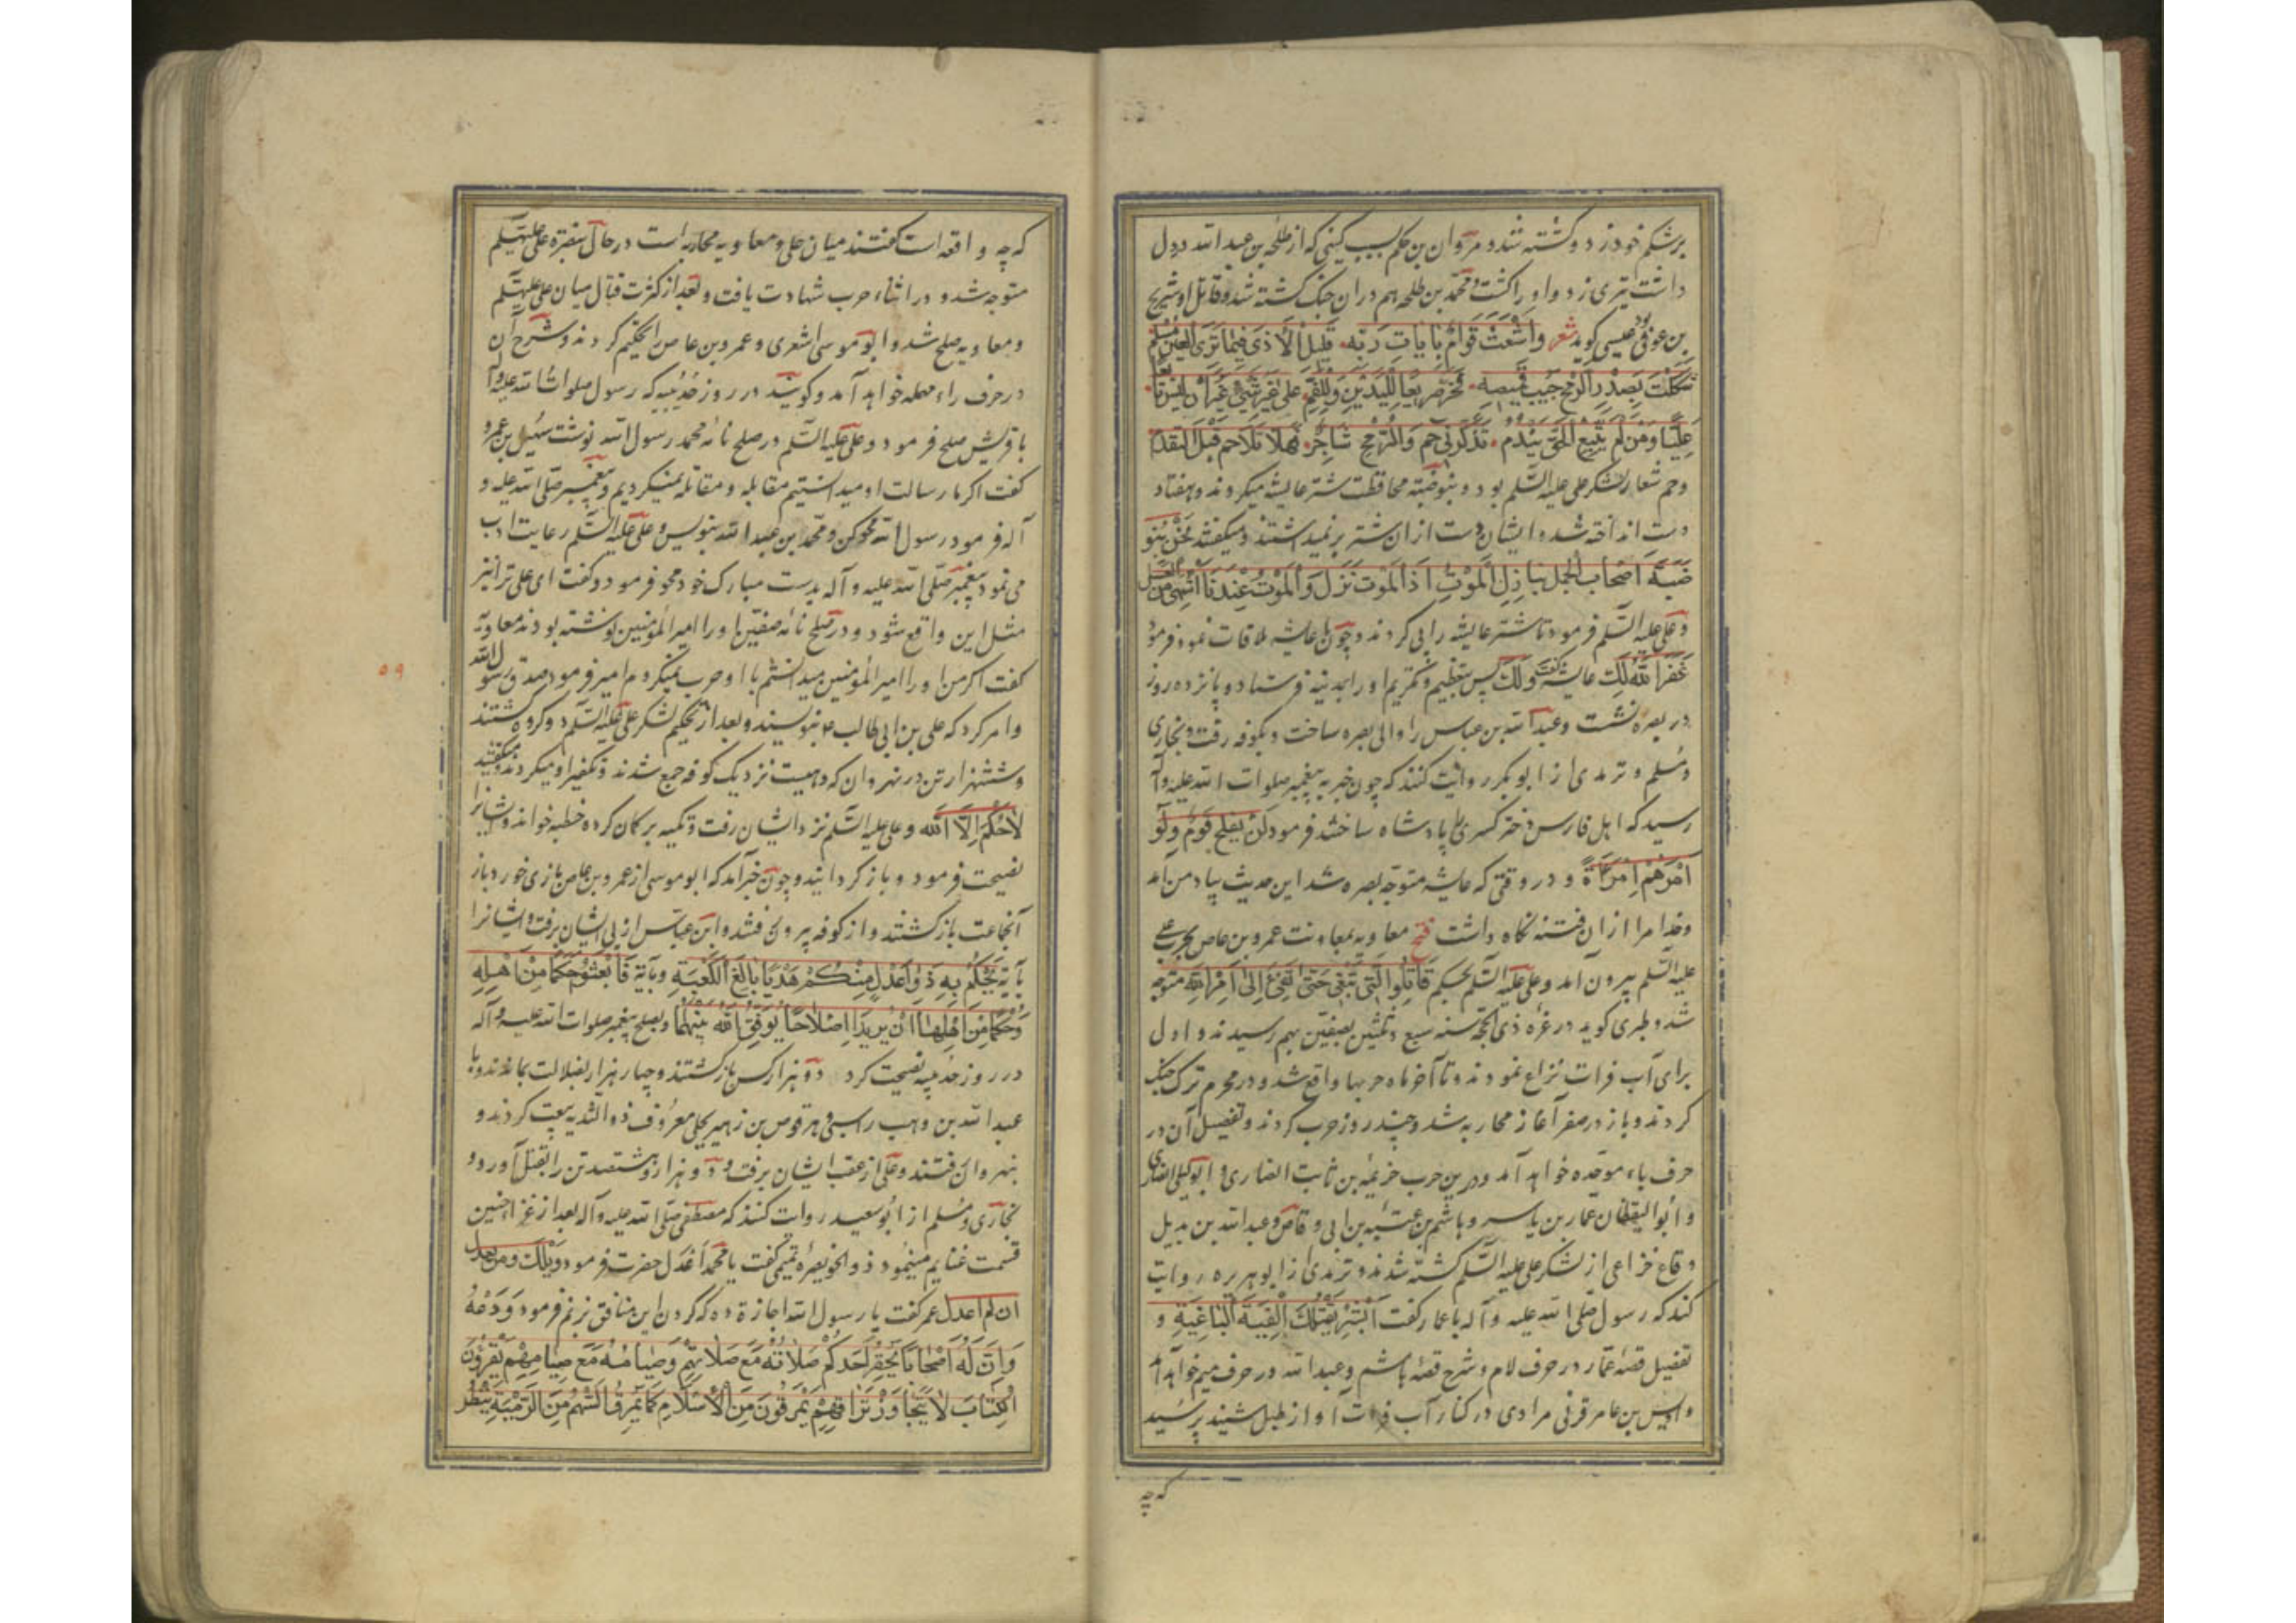 برشکم خود زد و کشته شد و مروان بن حکم بسبب کینی که از طلحه بن عبد الله در دل
داشت تیری زد و او را کشت و محمد بن طلحه هم دران جنک کشته شد و قاتل او شریح
بن عوفی عیسی کوید شعر وَاَشْعَثَ قَوّامٍ بِاٰیاتِ رَبِّه قَلیلِ الْاَذٰی فیما تَرَی الْعَیْنُ مُسْلِم
شَکَکْتُ بِصَدْرِ الرُّمْحِ جَیْبَ قَمیصِهِ فَخَرَّ صَریعًا لِلْیَدَیْنِ وَلِلْفَمِ عَلٰی غَیْرِ شَیْءٍ غَیْرَ اَنْ لَیْسَ تابِعًا
عَلِیًّا وَمَنْ لَمْ یَتْبَعِ الْحَقَّ یَنْدَمِ تُذَکِّرُنی حم وَالرُّمْحُ شاجِرٌ فَهَلَّا تَلَا حم قَبْلَ التَّقَدُّم
و حم شعار لشکر علی علیه السّلم بود و بنو ضبّه محافظت شتر عایشه میکردند و هفتاد
دست انداخته شد و ایشان دست ازان شتر برنمیداشتند و میکفتند نَحْنُ بَنُو
ضَبَّةَ اَصْحابُ الْجَمَلِ نُنازِلُ الْمَوْتَ اِذَا الْمَوْتُ نَزَلَ وَالْمَوْتُ عِنْدَنا اَشْهٰی مِنَ العسل
و علی علیه السّلم فرمود تا شتر عایشه را پی کردند و چون با عایشه ملاقات نمود فرمود
غَفَرَ اللهُ لَکِ عایشه کفت وَلَکَ پس بتعظیم و تکریم او را بمدینه فرستاد و پانزده روز
در بصره نشست و عبد الله بن عباس را والی بصره ساخت و بکوفه رفت و بخاری
و مُسلم و ترمدی از ابو بکره روایت کنند که چون خبر به پیغمبر صلوات الله علیه و آله
رسید که اهل فارس دختر کسری را پادشاه ساختند فرمود لَنْ یُفْلِحَ قَوْمٌ وَلَّوْ
اَمْرَهُمْ اِمْرَأَةً و در وقتی که عایشه متوجّه بصره شد این حدیث بیاد من آمد
و خدا مرا ازان فتنه نکاه داشت فتح معاویه بمعاونت عمرو بن عاص بحرب علی
علیه السّلم بیرون آمد و علی علیه السّلم بحکم فَقاتِلُوا الَّتی تَبْغی حَتّٰی تَفیءَ اِلٰی اَمْرِ اللهِ متوجه
شد و طبری کوید در غرّه ذی الحجّه سنه سبع و ثلثین بصفّین بهم رسیدند و اول
برای آب فرات نزاع نمودند و تا آخر ماه حربها واقع شد و در محرم ترک جنک
کردند و باز در صفر آغاز محاربه شد و چند روز حرب کردند و تفصیل آن در
حرف باء موحّده خواهد آمد و درین حرب خزیمه بن ثابت انصاری و ابو لیلی انصاری
و أبو الیقظان عمّار بن یاسر و هاشم بن عتبه بن ابی وقاص و عبد الله بن بدیل
وقاع خزاعی از لشکر علی علیه السّلم کشته شدند و ترمدی از ابو هریره روایت
کند که رسول صلّی الله علیه و آله با عمار کفت اَبْشِرْ تَقْتُلُکَ الْفِئَةُ الْباغِیَةُ و
تفصیل قصّه عمّار در حرف لام و شرح قصّه هاشم و عبد الله در حرف میم خواهد آمد
و اویس بن عامر قرنی مرادی در کنار آب فرات آواز طبل شنید پرسید
که چه
که چه واقعه است کفتند میان علی و معاویه محاربه است در حال بنصرة علی علیه السّلم
متوجه شد و در اثناء حرب شهادت یافت و بعد از کثرت قتال میان علی علیه السّلم
و معاویه صلح شد و ابو موسی اشعری و عمرو بن عاص را تحکیم کردند و شرح آن
در حرف راء مهمله خواهد آمد و کویند در روز حُدَیبیه که رسول صلوات الله علیه و آله
با قریش صلح فرمود و علی علیه السّلم در صلح نامه محمد رسول الله نوشت سُهَیل بن عمرو
کفت اکر ما رسالت او میدانستیم مقابله و مقاتله نمیکردیم و پیغمبر صلّی الله علیه و
آله فرمود رسول الله محو کن و محمّد بن عبد الله بنویس و علی علیه السّلم رعایت ادب
می نمود پیغمبر صلّی الله علیه و آله بدست مبارک خود محو فرمود و کفت ای علی ترا نیز
مثل این واقع شود و در صلح نامه صفّین او را امیر المؤمنین نوشته بودند معاویه
کفت اکر من او را امیر المؤمنین میدانستم با او حرب نمیکردم امیر فرمود صدق رسول الله
۵۹
و امر کرد که علی بن ابی طالب ع بنویسند و بعد از تحکیم لشکر علی علیه السّلم دو کروه کشتند
و ششهزار تن در نهروان که دهیست نزدیک کوفه جمع شدند و تکفیر او میکردند و میکفتند
لاٰحُکْمَ اِلَّا الله و علی علیه السّلم نزد ایشان رفت و تکیه بر کمان کرده خطبه خواند و ایشانرا
نصیحت فرمود و باز کردانید و چون خبر آمد که ابو موسی از عمرو بن عاص بازی خورد باز
آنجماعت باز کشتند و از کوفه بیرون رفتند و ابن عبّاس از پی ایشان برفت و ایشانرا
بآیه یَحْکُمُ بِهِ ذَوا عَدْلٍ مِنْکُمْ هَدْیًا بالِغَ الْکَعْبَةِ و بآیة فَابْعَثُوا حَکَمًا مِنْ اَهْلِهِ
وَحَکَمًا مِنْ اَهْلِها اِنْ یُریدا اِصْلاحًا یُوَفِّقِ اللهُ بَیْنَهُما و بصلح پیغمبر صلوات الله علیه و آله
در روز حدیبیه نصیحت کرد دو هزار کس باز کشتند و چهار هزار بضلالت بماندند و با
عبد الله بن وهب راسبی و هرقوص بن زهیر بجلی معروف بذو الثدیه بیعت کردند و
بنهروان رفتند و علی از عقب ایشان برفت و دو هزار و هشتصد تن را بقتل آورد و
بخاری و مُسلم از ابو سعید روایت کنند که مصطفی صلّی الله علیه و آله بعد از غزاء حنین
قسمت غنایم مینمود ذو الخویصره تمیمی کفت یا محمّد اَعْدِل حضرت فرمود وَیْلَکَ و من یعدل
ان لم اعدل عمر کفت یا رسول الله اجازة ده که کردن این منافق بزنم فرمود وَدَعْهُ
وَاِنَّ لَهُ اَصْحابًا یَحْقِرُ اَحَدُکُمْ صَلاتَهُ مَعَ صَلاتِهِمْ وَصِیامَهُ مَعَ صِیامِهِمْ یَقْرَؤُنَ
الْکِتابَ لاٰیُجاوِزُ تَراقِیَهُمْ یَمْرُقُونَ مِنَ الْاِسْلامِ کَما یَمْرُقُ السَّهْمُ مِنَ الرَّمِیَّةِ یَنْظُرُ